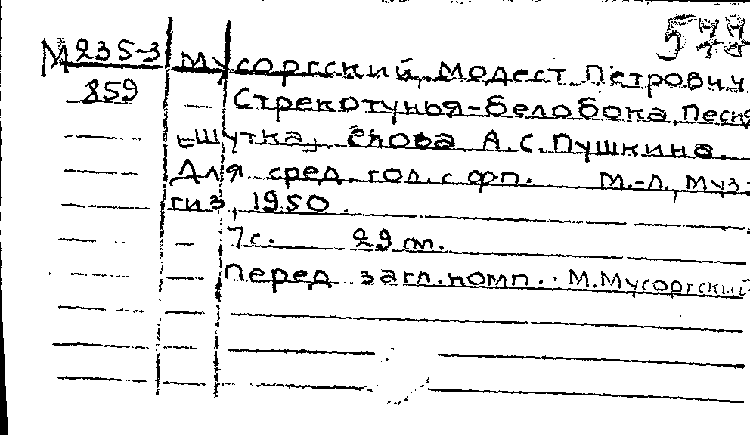 578
М235-3 Мусоргский, Модест Петрович
859 Стрекотунья-белобока. Песня
-шутка, Слова А.С.Пушкина.
Для сред. гол. с фп. М.-Л., Муз-
гиз, 1950.
7с. 29 см.
Перед загл. комп.: М.Мусоргский